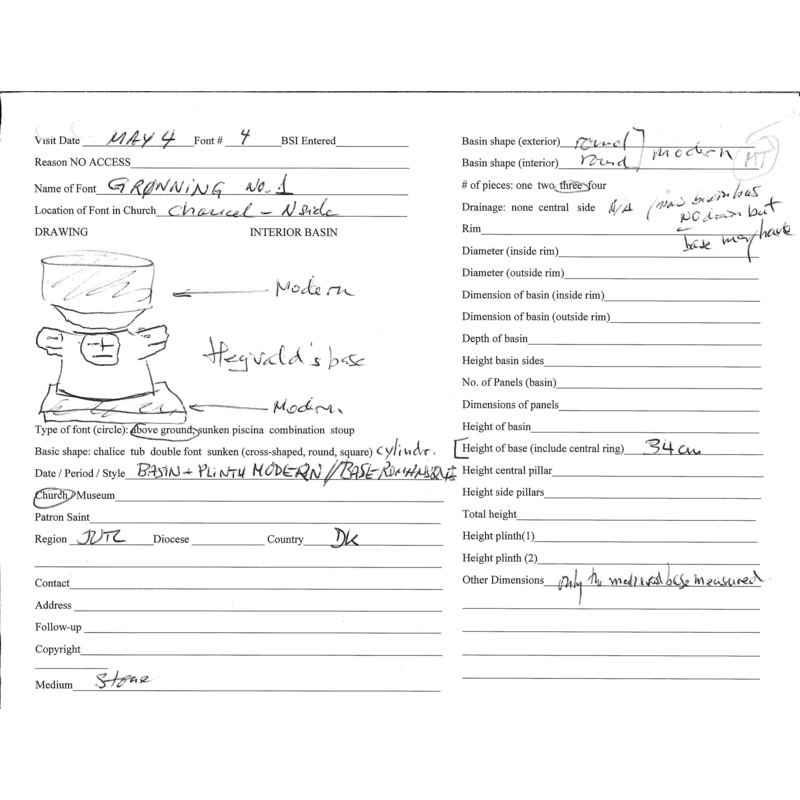 Visit Date MAY 4 Font # 4 BSI Entered
Reason NO ACCESS
Name of Font GRØNNING NO. 1
Location of Font in Church chancel - N side
DRAWING INTERIOR BASIN
Modern
Hegvald's base
Modern
Type of font (circle): above ground, sunken piscina combination stoup
Basic shape: chalice tub double font sunken (cross-shaped, round, square) cylindr.
Date / Period / Style BASIN + PLINTH MODERN // BASE ROMANESQUE
Church / Museum
Patron Saint
Region JUTL Diocese Country DK
Contact
Address
Follow-up
Copyright
Medium Stone
Basin shape (exterior) round
Basin shape (interior) round ] modern MT
# of pieces: one two three four
Drainage: none central side N/A (new basin has
no drain but
Rim
base may have
Diameter (inside rim)
Diameter (outside rim)
Dimension of basin (inside rim)
Dimension of basin (outside rim)
Depth of basin
Height basin sides
No. of Panels (basin)
Dimensions of panels
Height of basin
[Height of base (include central ring) 34 cm
Height central pillar
Height side pillars
Total height
Height plinth(1)
Height plinth (2)
Other Dimensions only the medieval base measured.